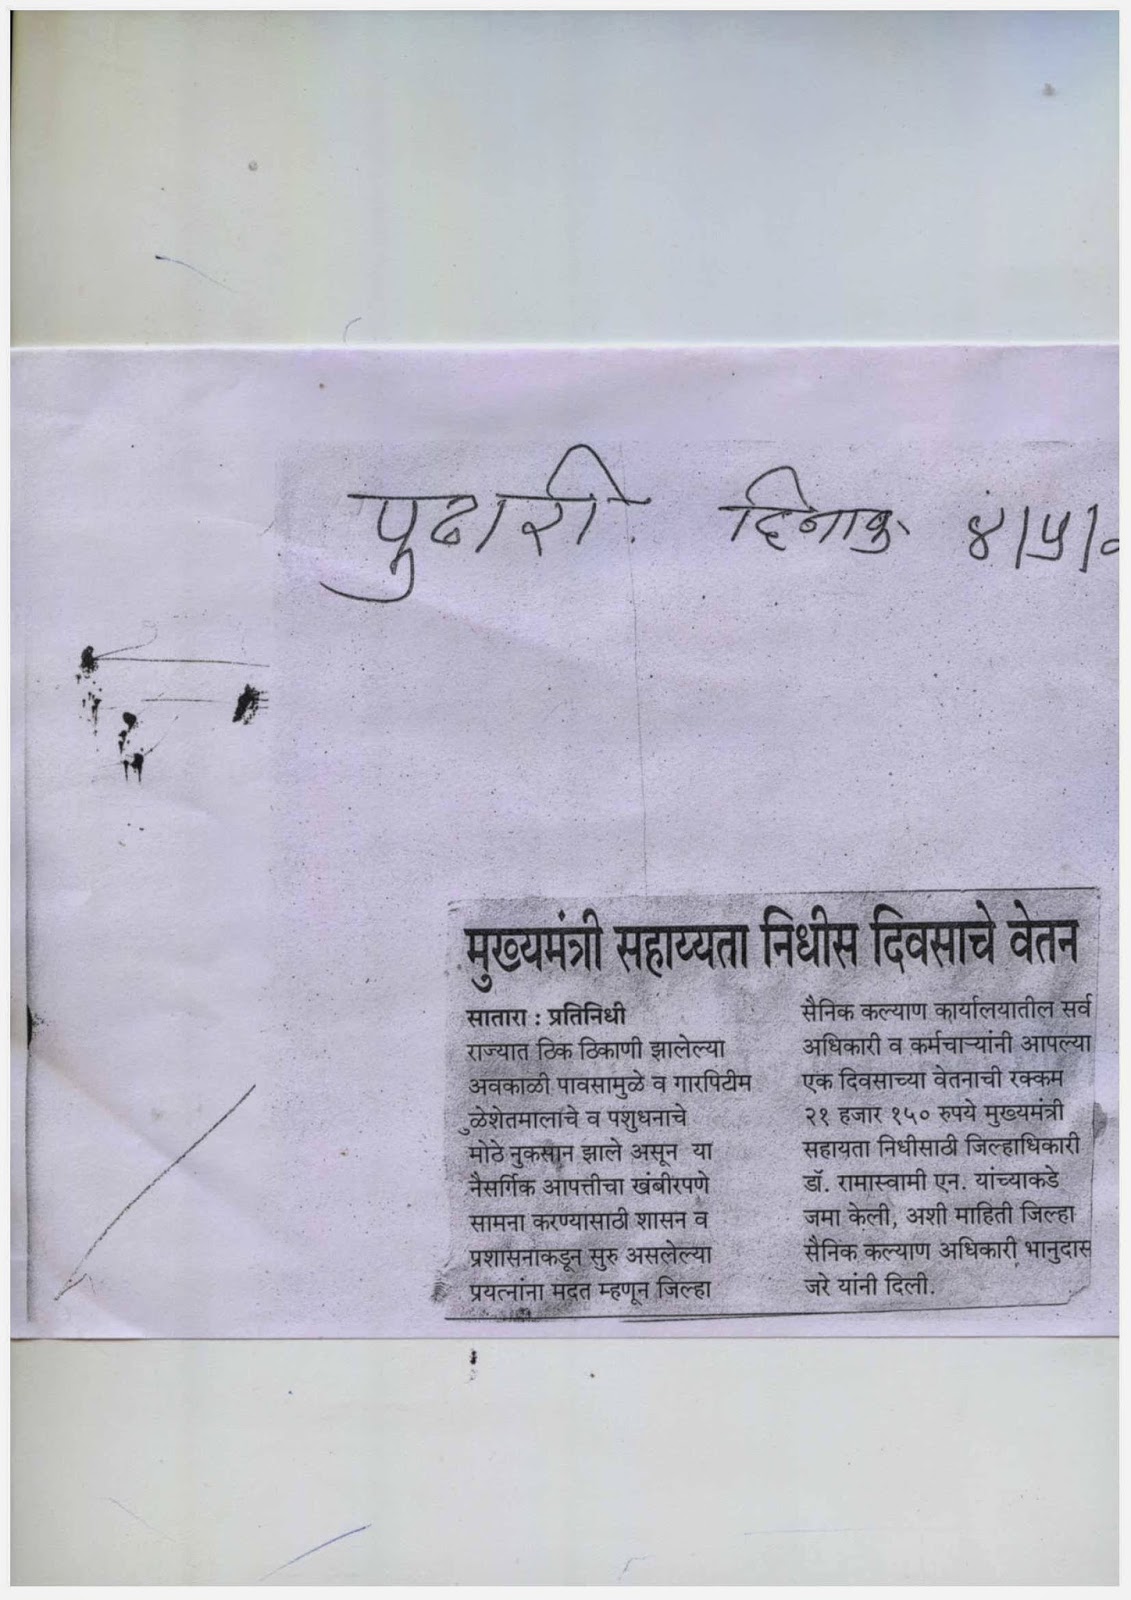 पुढारी. दिनांक ४/५/
मुख्यमंत्री सहाय्यता निधीस दिवसाचे वेतन
सातारा : प्रतिनिधी
राज्यात ठिक ठिकाणी झालेल्या
अवकाळी पावसामुळे व गारपिटीम
ुळेशेतमालाचे व पशुधनाचे
मोठे नुकसान झाले असून या
नैसर्गिक आपत्तीचा खंबीरपणे
सामना करण्यासाठी शासन व
प्रशासनाकडून सुरु असलेल्या
प्रयत्नांना मदत म्हणून जिल्हा
सैनिक कल्याण कार्यालयातील सर्व
अधिकारी व कर्मचाऱ्यांनी आपल्या
एक दिवसाच्या वेतनाची रक्कम
२१ हजार १५० रुपये मुख्यमंत्री
सहायता निधीसाठी जिल्हाधिकारी
डॉ. रामास्वामी एन. यांच्याकडे
जमा केली, अशी माहिती जिल्हा
सैनिक कल्याण अधिकारी भानुदास
जरे यांनी दिली.